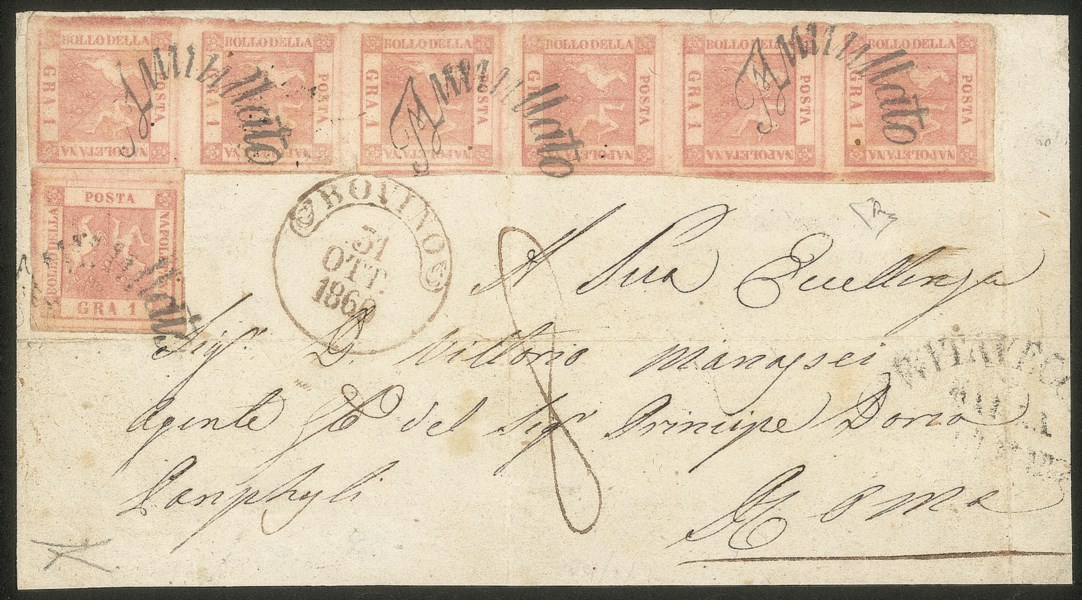 BOLLO DELLA POSTA NAPOLETANA GRA 1
BOLLO DELLA POSTA NAPOLETANA GRA 1
BOLLO DELLA POSTA NAPOLETANA GRA 1
BOLLO DELLA POSTA NAPOLETANA GRA 1
BOLLO DELLA POSTA NAPOLETANA GRA 1
BOLLO DELLA POSTA NAPOLETANA GRA 1
Annullato
Annullato
Annullato
BOLLO DELLA POSTA NAPOLETANA GRA 1
Annullato
BOVINO
31
OTT.
1860
8
A Sua Eccellenza
Sigr. D. Vittorio Manassei
Agente Gle del Sigr Principe Doria
Panphyli
Roma